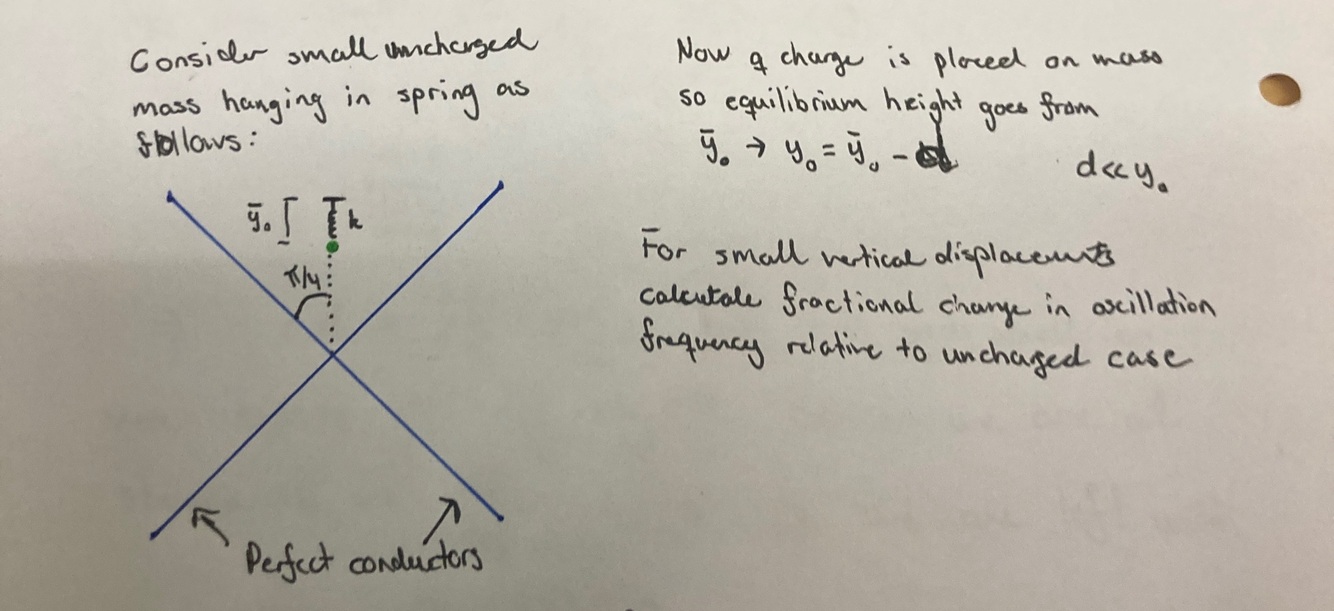 Consider small uncharged
mass hanging in spring as
follows:
ȳ₀
k
π/4
Perfect conductors
Now q charge is placed on mass
so equilibrium height goes from
ȳ₀ → y₀ = ȳ₀ - d
d<<y₀
For small vertical displacements
calcutale fractional change in oscillation
frequency relative to unchaged case